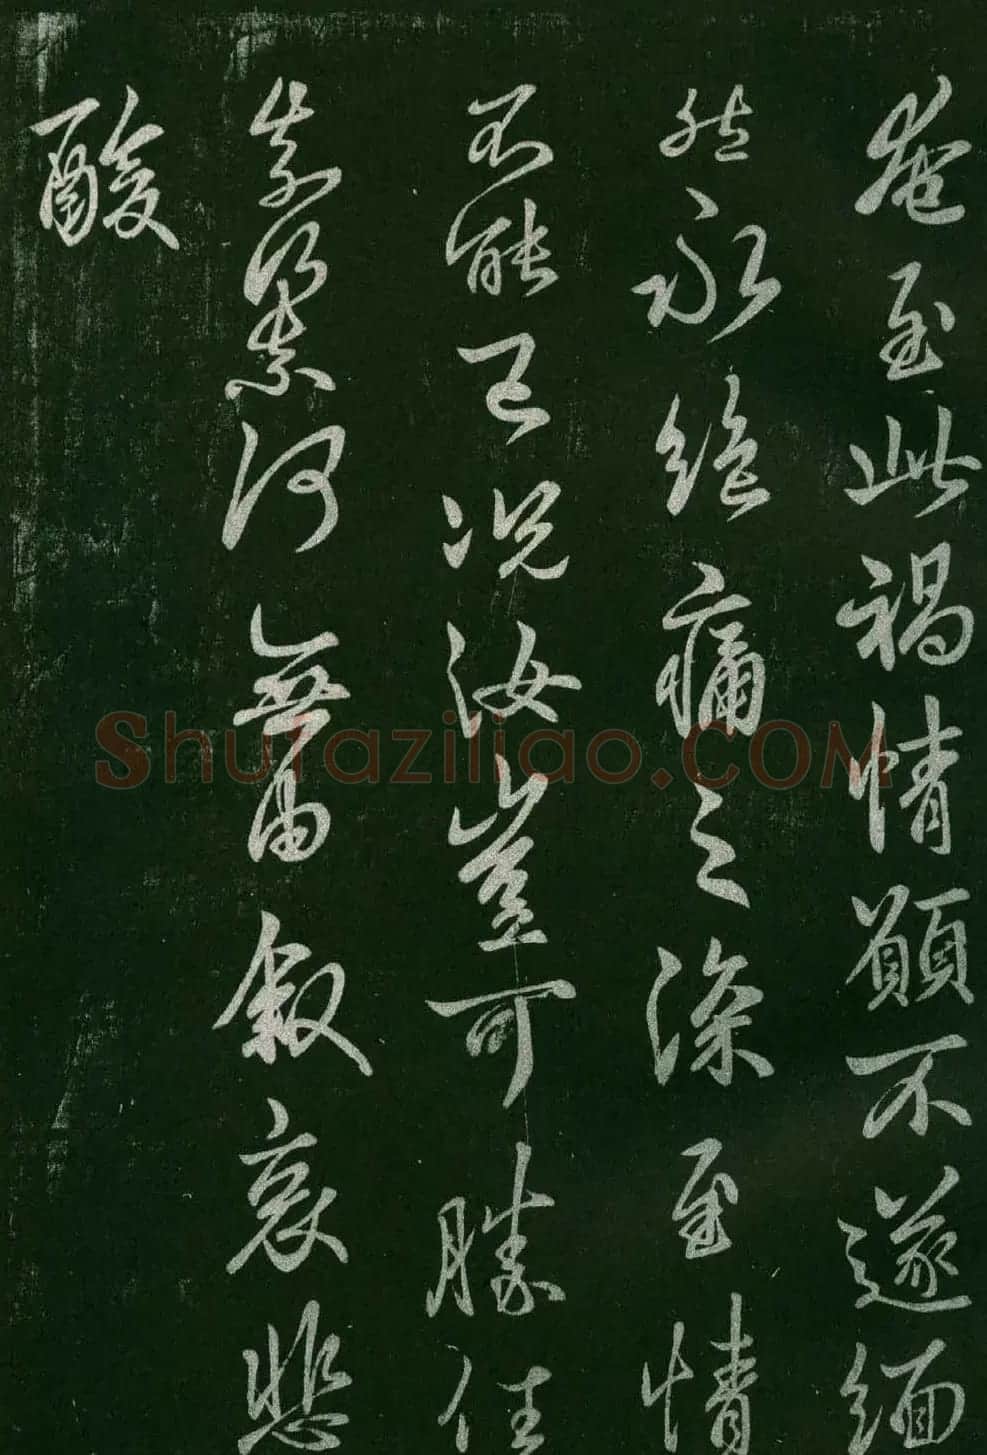 奄至此禍情願不遂緬
然永絕痛之深至情
不能已況汝豈可勝任
奈何奈何無由敘哀悲
酸
Shufaziliao.COM